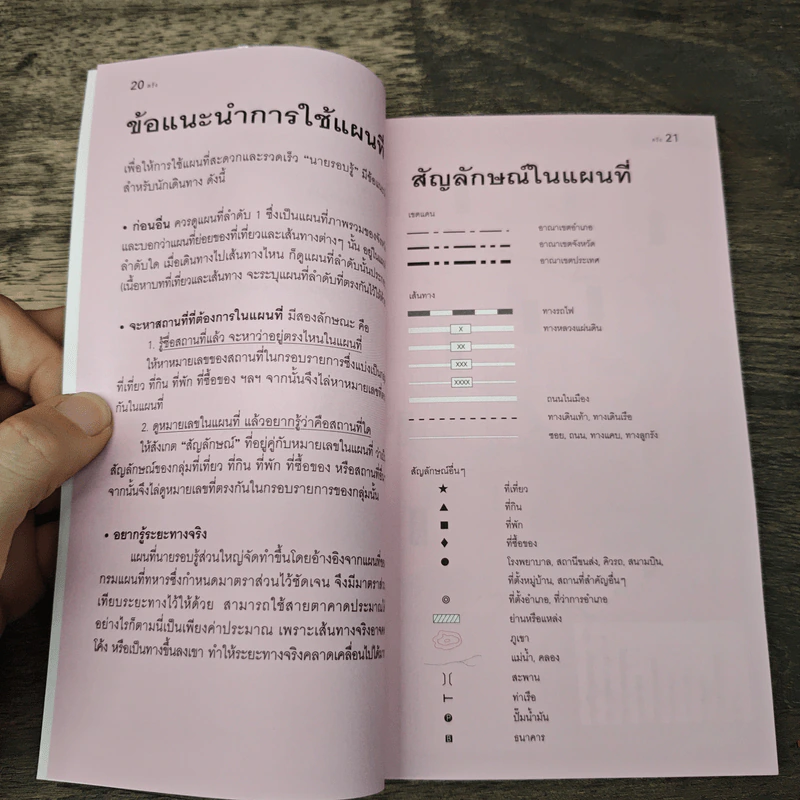 20 ตรัง
ข้อแนะนำการใช้แผนที่
เพื่อให้การใช้แผนที่สะดวกและรวดเร็ว "นายรอบรู้"
สำหรับนักเดินทาง ดังนี้
• ก่อนอื่น ควรดูแผนที่ลำดับ 1 ซึ่งเป็นแผนที่ภาพรวมของ
และบอกว่าแผนที่ย่อยของที่เที่ยวและเส้นทางต่างๆ นั้น
ลำดับใด เมื่อเดินทางไปเส้นทางไหน ก็ดูแผนที่ลำดับนั้น
(เนื้อหาบทที่เที่ยวและเส้นทาง จะระบุแผนที่ลำดับที่ตรงกันไว้
• จะหาสถานที่ที่ต้องการในแผนที่ มีสองลักษณะ คือ
1. รู้ชื่อสถานที่แล้ว จะหาว่าอยู่ตรงไหนในแผนที่
ให้หาหมายเลขของสถานที่ในกรอบรายการซึ่งแบ่งเป็น
ที่เที่ยว ที่กิน ที่พัก ที่ซื้อของ ฯลฯ จากนั้นจึงไล่หาหมายเลขที่
กันในแผนที่
2. ดูหมายเลขในแผนที่ แล้วอยากรู้ว่าคือสถานที่ใด
ให้สังเกต "สัญลักษณ์" ที่อยู่คู่กับหมายเลขในแผนที่
สัญลักษณ์ของกลุ่มที่เที่ยว ที่กิน ที่พัก ที่ซื้อของ หรือสถานที่
จากนั้นจึงไล่ดูหมายเลขที่ตรงกันในกรอบรายการของกลุ่มนั้น
• อยากรู้ระยะทางจริง
แผนที่นายรอบรู้ส่วนใหญ่จัดทำขึ้นโดยอ้างอิงจากแผนที่
กรมแผนที่ทหารซึ่งกำหนดมาตราส่วนไว้ชัดเจน จึงมีมาตราส่วน
เทียบระยะทางไว้ให้ด้วย สามารถใช้สายตาคาดประมาณ
อย่างไรก็ตามนี่เป็นเพียงค่าประมาณ เพราะเส้นทางจริงอาจ
โค้ง หรือเป็นทางขึ้นลงเขา ทำให้ระยะทางจริงคลาดเคลื่อนไป
ตรัง 21
สัญลักษณ์ในแผนที่
เขตแดน
อาณาเขตอำเภอ
อาณาเขตจังหวัด
อาณาเขตประเทศ
เส้นทาง
ทางรถไฟ
X ทางหลวงแผ่นดิน
XX
XXX
XXXX
ถนนในเมือง
ทางเดินเท้า, ทางเดินเรือ
ซอย, ถนน, ทางแคบ, ทางลูกรัง
สัญลักษณ์อื่นๆ
ที่เที่ยว
ที่กิน
ที่พัก
ที่ซื้อของ
โรงพยาบาล, สถานีขนส่ง, คิวรถ, สนามบิน,
ที่ตั้งหมู่บ้าน, สถานที่สำคัญอื่นๆ
ที่ตั้งอำเภอ, ที่ว่าการอำเภอ
ย่านหรือแหล่ง
ภูเขา
แม่น้ำ, คลอง
สะพาน
ท่าเรือ
P ปั๊มน้ำมัน
B ธนาคาร